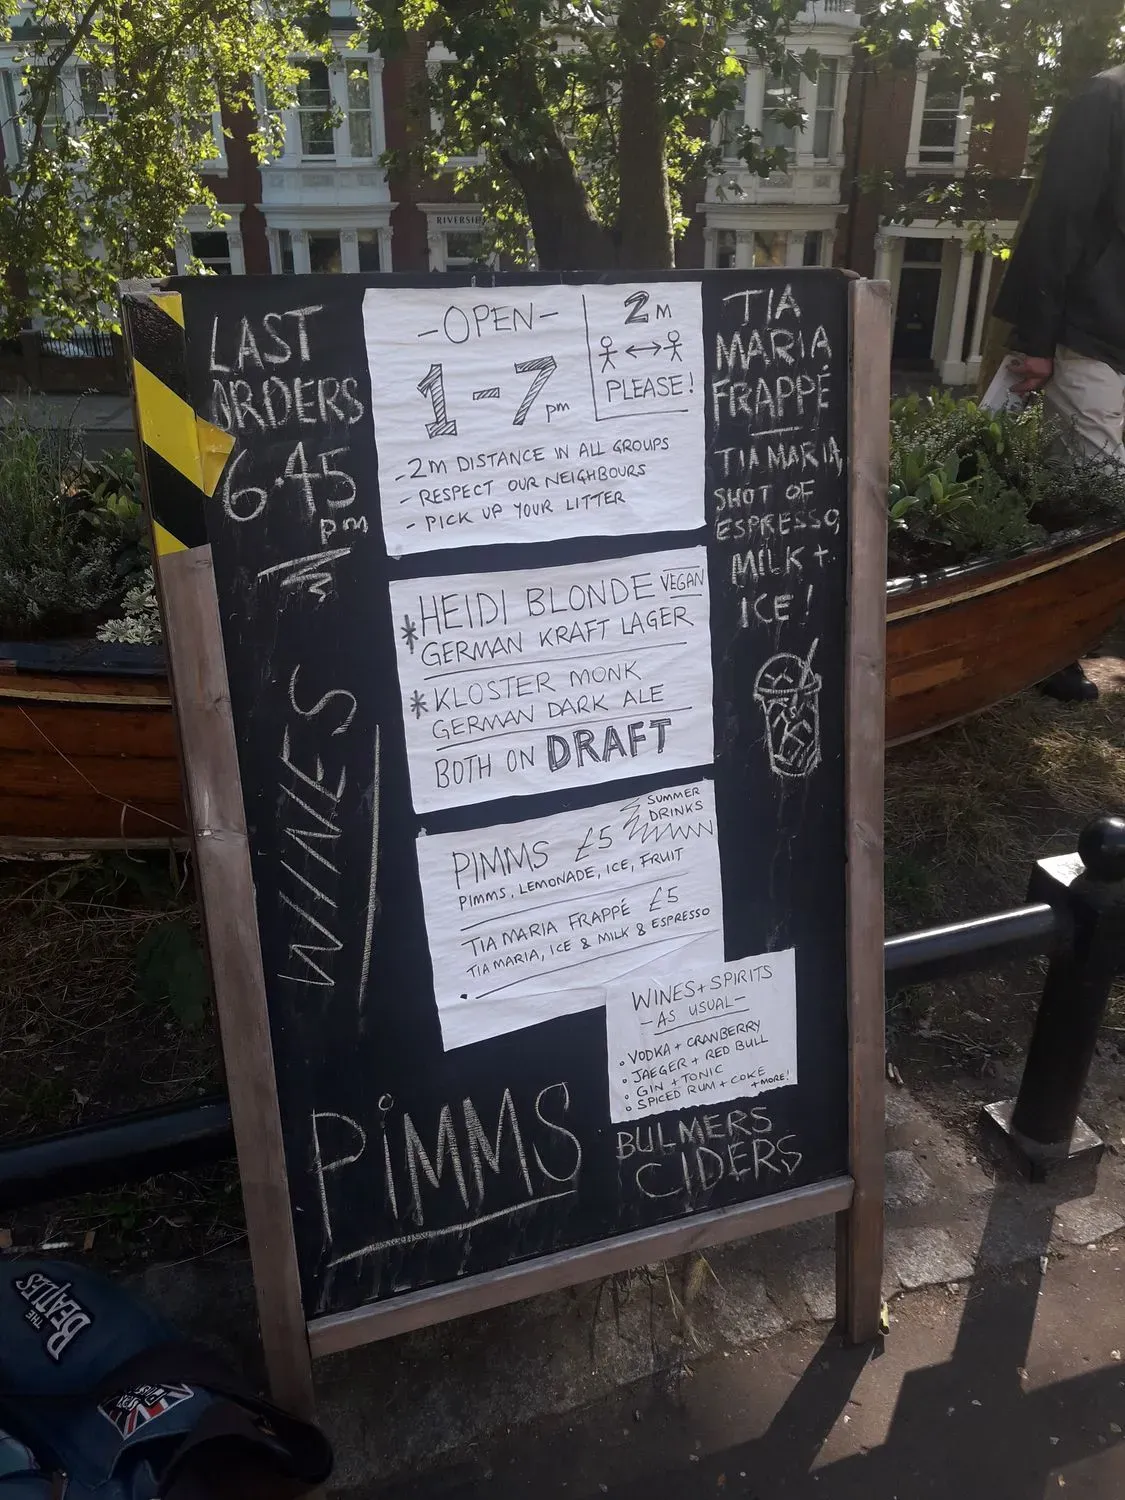 RIVERSI
LAST
ORDERS
6.45
pm
WINES
-OPEN-
1-7
pm
2M
PLEASE!
- 2M DISTANCE IN ALL GROUPS
- RESPECT OUR NEIGHBOURS
- PICK UP YOUR LITTER
* HEIDI BLONDE VEGAN
GERMAN KRAFT LAGER
* KLOSTER MONK
GERMAN DARK ALE
BOTH ON DRAFT
SUMMER
DRINKS
PIMMS £5
PIMMS, LEMONADE, ICE, FRUIT
TIA MARIA FRAPPÉ £5
TIA MARIA, ICE & MILK & ESPRESSO
WINES + SPIRITS
- AS USUAL -
• VODKA + CRANBERRY
• JAEGER + RED BULL
• GIN + TONIC
• SPICED RUM + COKE
+ MORE!
TIA
MARIA
FRAPPÉ
TIA MARIA,
SHOT OF
ESPRESSO,
MILK +
ICE!
PiMMS
BULMERS
CIDERS
THE
BEATLES